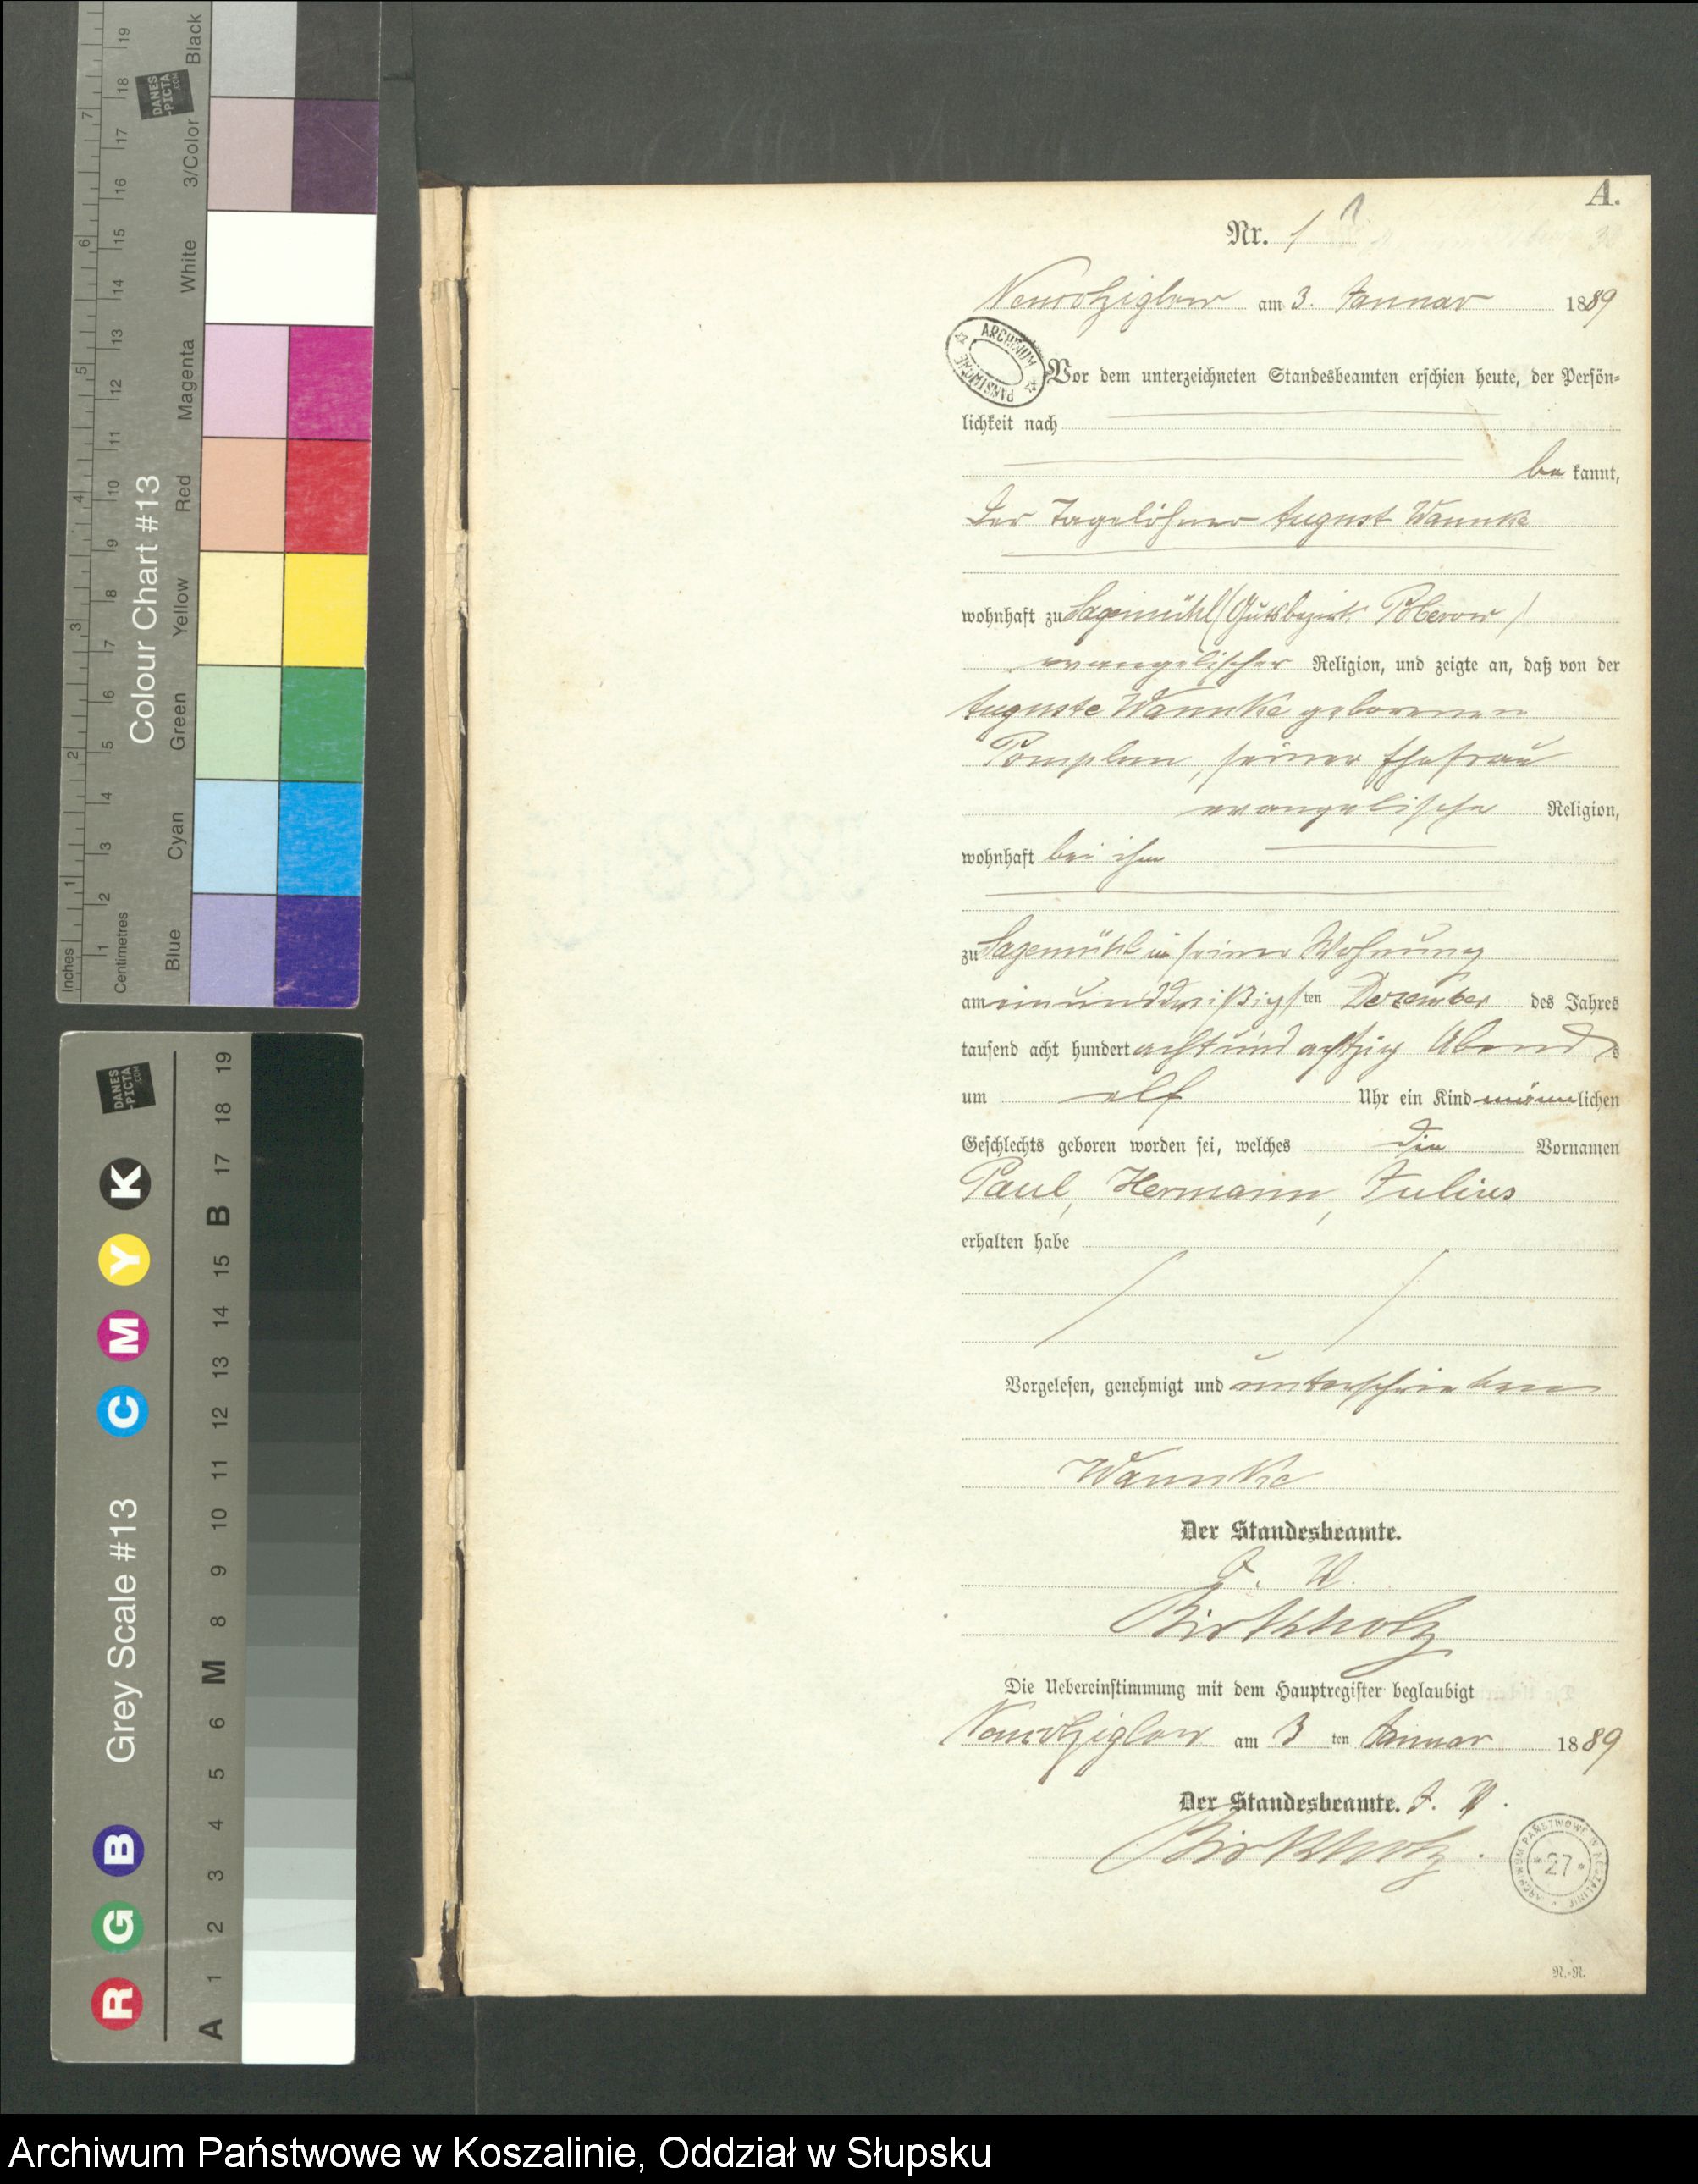 A.
Nr. 1
am 3. Januar 1889
ARCHIWUM PAŃSTWOWE
Vor dem unterzeichneten Standesbeamten erschien heute, der Persön-
lichkeit nach
be kannt,
Der Tagelöhner August Wannke
wohnhaft zu Sagemühl (Gutsbezirk Poberow)
evangelischer Religion, und zeigte an, daß von der
Auguste Wannke geborenen
Pomplun, seiner Ehefrau
evangelischer Religion,
wohnhaft bei ihm
zu Sagemühl in seiner Wohnung
am einunddreißigsten Dezember des Jahres
tausend acht hundert achtundachtzig Abends
um elf Uhr ein Kind männlichen
Geschlechts geboren worden sei, welches die Vornamen
Paul, Hermann, Julius
erhalten habe
Vorgelesen, genehmigt und unterschrieben
Wannke
Der Standesbeamte.
J. V.
Birkholz
Die Uebereinstimmung mit dem Hauptregister beglaubigt
am 3 ten Januar 1889
Der Standesbeamte. J. V.
Birkholz.
ARCHIWUM PAŃSTWOWE W KOSZALINIE
* 27 *
R.-R.
Colour Chart #13
Inches 1 2 3 4 5 6 7
Centimetres 1 2 3 4 5 6 7 8 9 10 11 12 13 14 15 16 17 18 19
Blue Cyan Green Yellow Red Magenta White 3/Color Black
DANES
-PICTA
.COM
Grey Scale #13
R G B C M Y K
A 1 2 3 4 5 6 M 8 9 10 11 12 13 14 15 B 17 18 19
DANES
-PICTA
.COM
Archiwum Państwowe w Koszalinie, Oddział w Słupsku